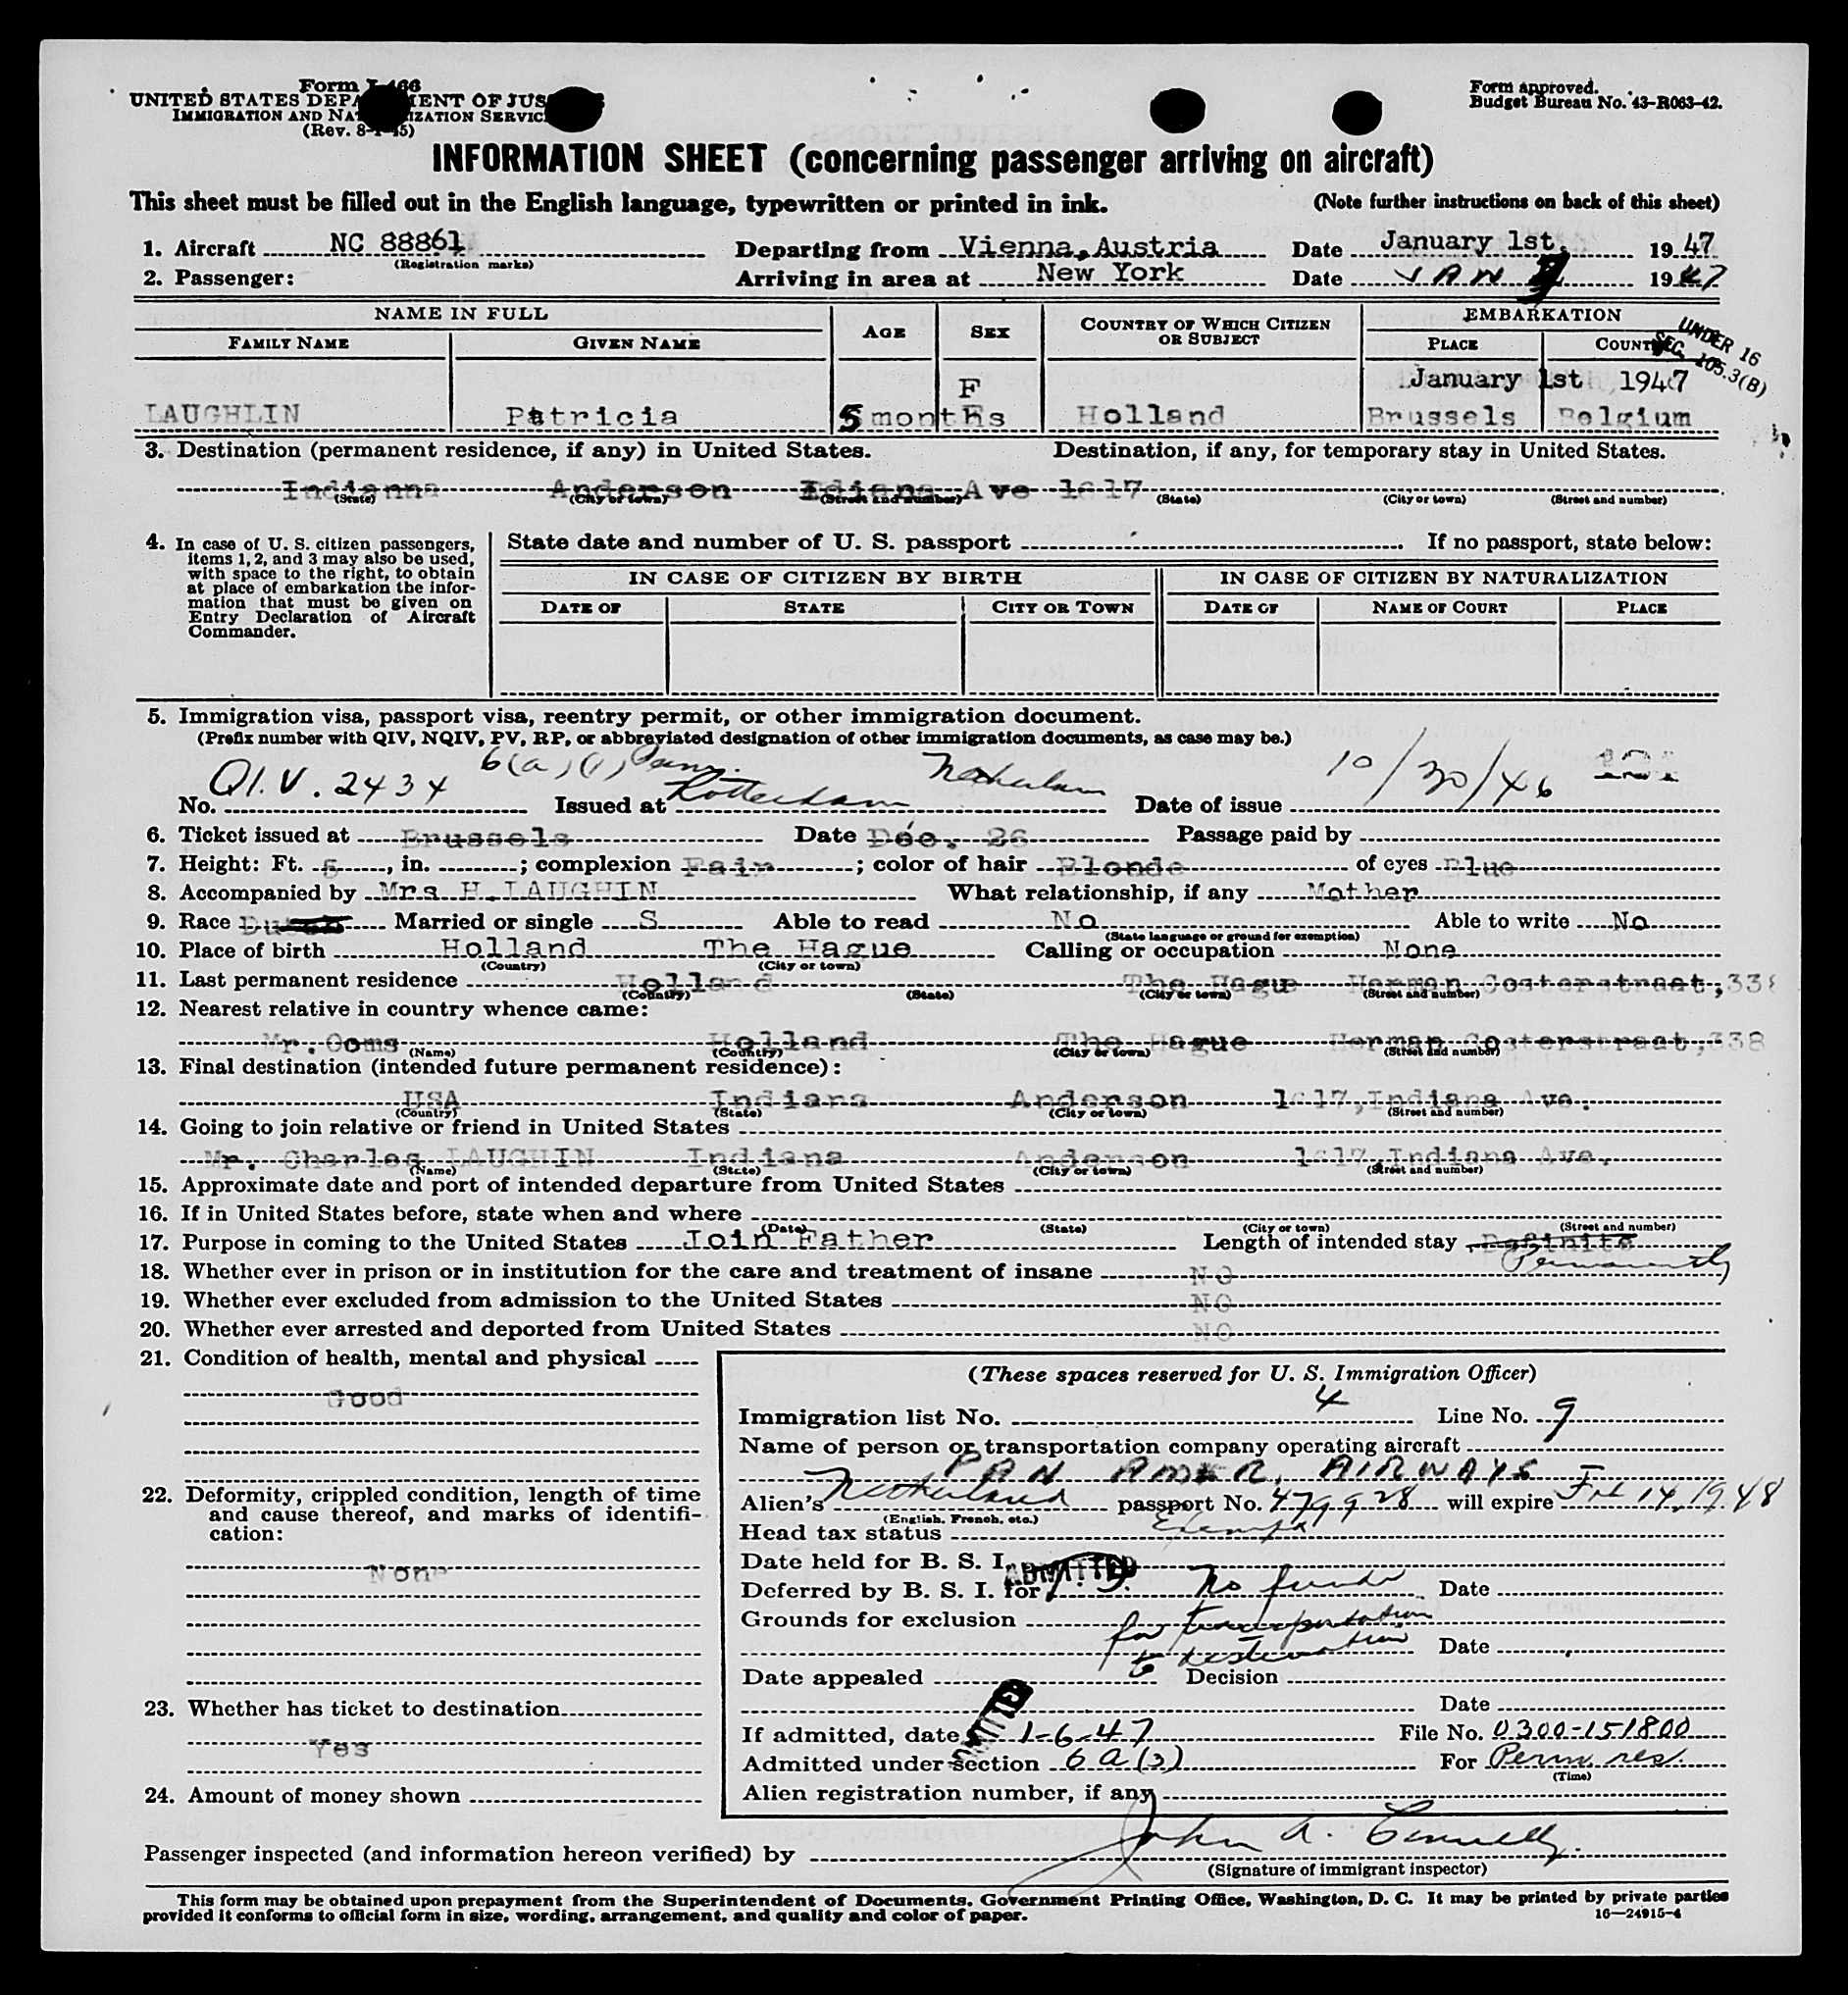 Form I-466
UNITED STATES DEPARTMENT OF JUSTICE
IMMIGRATION AND NATURALIZATION SERVICE
(Rev. 8-1-45)
Form approved.
Budget Bureau No. 43-R063-42.
INFORMATION SHEET (concerning passenger arriving on aircraft)
This sheet must be filled out in the English language, typewritten or printed in ink. (Note further instructions on back of this sheet)
1. Aircraft NC 88861 Departing from Vienna, Austria Date January 1st, 1947
(Registration marks)
2. Passenger: Arriving in area at New York Date JAN 1947
NAME IN FULL AGE SEX COUNTRY OF WHICH CITIZEN OR SUBJECT EMBARKATION
FAMILY NAME GIVEN NAME PLACE COUNTRY
UNDER 16
SEC. 105.3(B)
F January 1st 1947
LAUGHLIN Patricia 5 months Holland Brussels Belgium
3. Destination (permanent residence, if any) in United States. Destination, if any, for temporary stay in United States.
Indianna Anderson Idiana Ave 1617
(State) (City or town) (Street and number) (State) (City or town) (Street and number)
4. In case of U. S. citizen passengers, items 1, 2, and 3 may also be used, with space to the right, to obtain at place of embarkation the information that must be given on Entry Declaration of Aircraft Commander.
State date and number of U. S. passport If no passport, state below:
IN CASE OF CITIZEN BY BIRTH IN CASE OF CITIZEN BY NATURALIZATION
DATE OF STATE CITY OR TOWN DATE OF NAME OF COURT PLACE
5. Immigration visa, passport visa, reentry permit, or other immigration document.
(Prefix number with QIV, NQIV, PV, RP, or abbreviated designation of other immigration documents, as case may be.)
6(a)(1) Perm.
No. QI.V. 2434 Issued at Rotterdam Date of issue 10/30/46
6. Ticket issued at Brussels Date Dec. 26 Passage paid by
7. Height: Ft. 5, in. ; complexion Fair ; color of hair Blonde of eyes Blue
8. Accompanied by Mrs H.LAUGHIN What relationship, if any Mother
9. Race Dutch Married or single S Able to read No Able to write No
(State language or ground for exemption)
10. Place of birth Holland The Hague Calling or occupation None
(Country) (City or town)
11. Last permanent residence Holland The Hague Herman Costerstraat, 338
(Country) (State) (City or town) (Street and number)
12. Nearest relative in country whence came:
Mr. Ooms Holland The Hague Herman Costerstraat, 338
(Name) (Country) (City or town) (Street and number)
13. Final destination (intended future permanent residence):
USA Indiana Anderson 1617, Indiana Ave.
(Country) (State) (City or town) (Street and number)
14. Going to join relative or friend in United States
Mr. Charles LAUGHIN Indiana Anderson 1617, Indiana Ave.
(Name) (State) (City or town) (Street and number)
15. Approximate date and port of intended departure from United States
16. If in United States before, state when and where
(Date) (State) (City or town) (Street and number)
17. Purpose in coming to the United States Join Father Length of intended stay Definite
Permanently
18. Whether ever in prison or in institution for the care and treatment of insane NO
19. Whether ever excluded from admission to the United States NO
20. Whether ever arrested and deported from United States NO
21. Condition of health, mental and physical
Good
22. Deformity, crippled condition, length of time and cause thereof, and marks of identification:
None
23. Whether has ticket to destination
Yes
24. Amount of money shown
(These spaces reserved for U. S. Immigration Officer)
Immigration list No. 4 Line No. 9
Name of person or transportation company operating aircraft
PAN AMER. AIRWAYS
Alien's Netherland passport No. 479928 will expire Feb 14, 1948
(English, French, etc.)
Head tax status Exempt
Date held for B. S. I. ADMITTED
Deferred by B. S. I. for No funds Date
Grounds for exclusion for transportation
to destination Date
Date appealed Decision
Date
ADMITTED
If admitted, date 1-6-47 File No. 0300-151800
Admitted under section 6a(3) For Perm. res.
(Time)
Alien registration number, if any
Passenger inspected (and information hereon verified) by John A. Connelly.
(Signature of immigrant inspector)
This form may be obtained upon prepayment from the Superintendent of Documents, Government Printing Office, Washington, D. C. It may be printed by private parties
provided it conforms to official form in size, wording, arrangement, and quality and color of paper. 16—24915-4